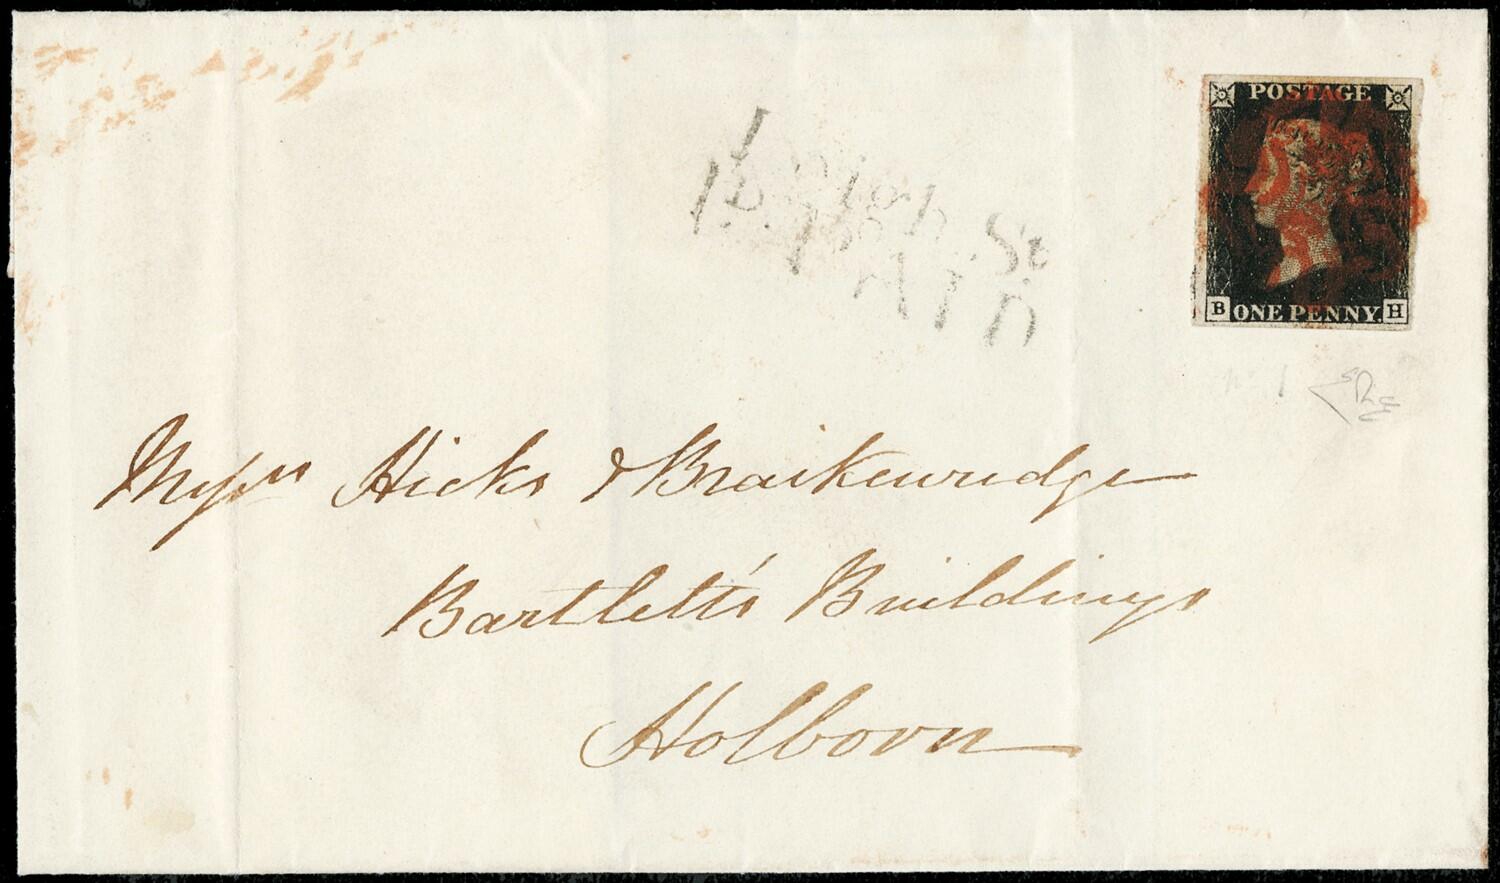 POSTAGE
B ONE PENNY. H
St
PAID
Messrs Hicks & Braikenridge
Bartlett's Buildings
Holborn